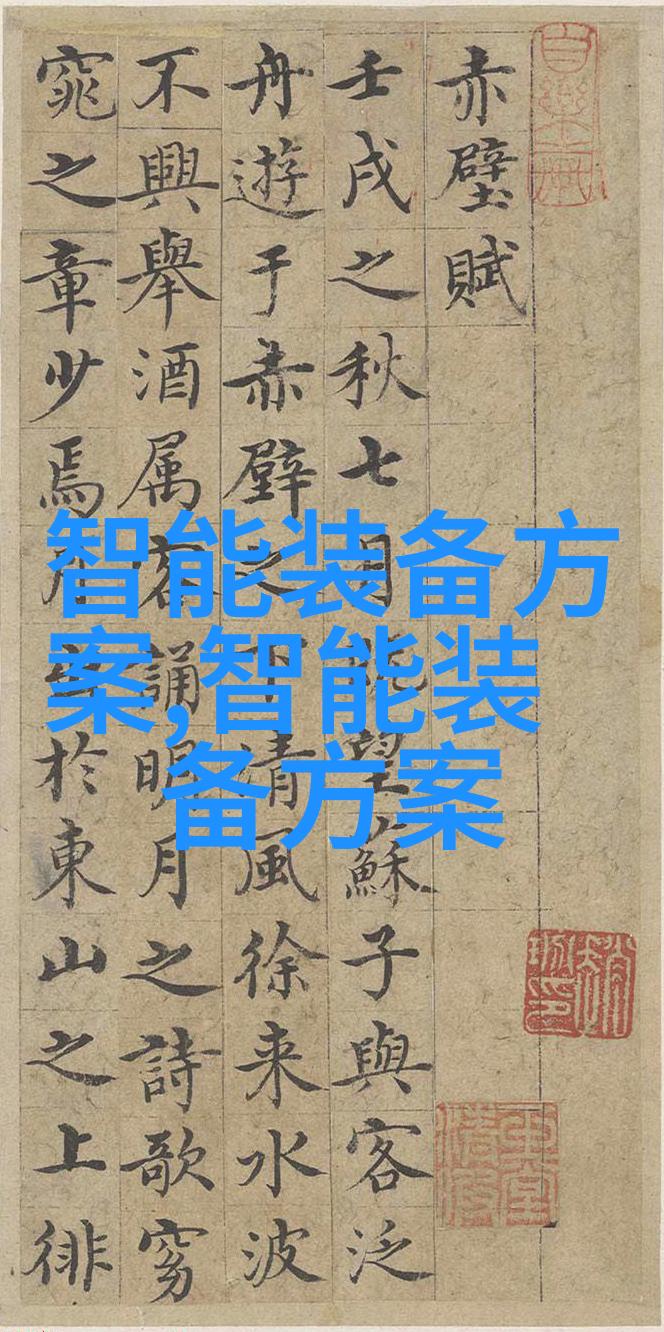 赤壁賦
壬戌之秋七月既望蘇子與客泛
舟遊于赤壁之下清風徐来水波
不興舉酒属客誦明月之詩歌窈
窕之章少焉月出於東山之上徘
智能装备方
案,智能装
备方案